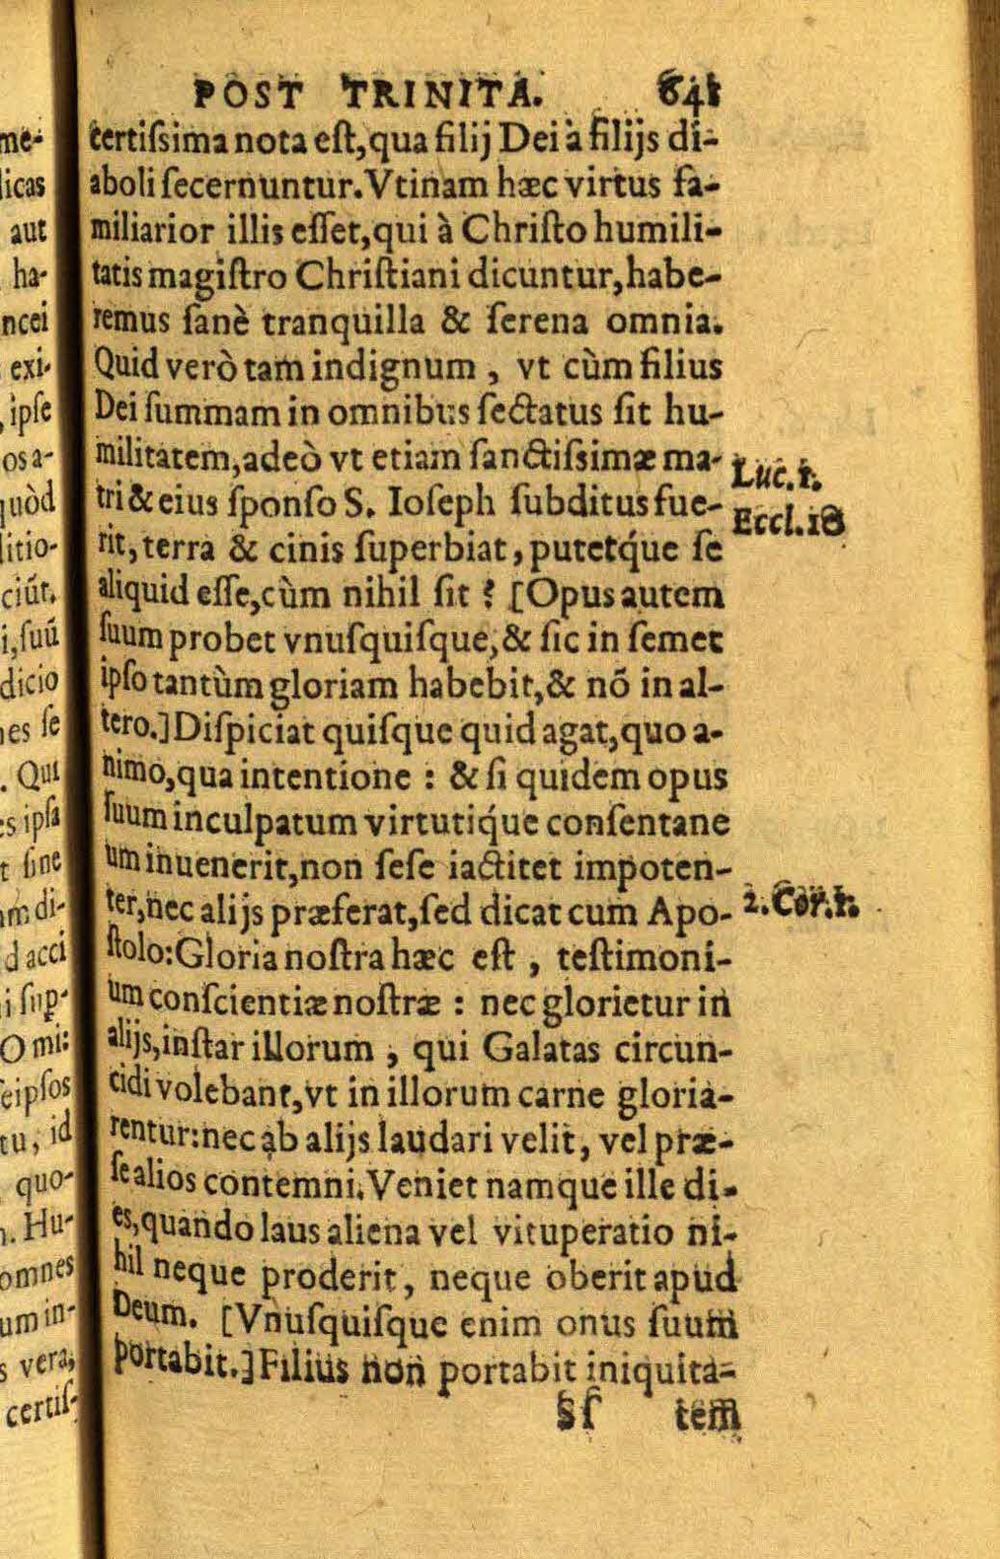 POST TRINITA. 641
certiſsima nota eſt, qua filij Dei à filijs di-
aboli ſecernuntur. Vtinam hæc virtus fa-
miliarior illis eſſet, qui à Chriſto humili-
tatis magiſtro Chriſtiani dicuntur, habe-
remus ſanè tranquilla & ſerena omnia.
Quid verò tam indignum, vt cùm filius
Dei ſummam in omnibus ſectatus ſit hu-
militatem, adeò vt etiam ſanctiſsimæ ma-
tri & eius ſponſo S. Ioſeph ſubditus fue-
rit, terra & cinis ſuperbiat, putetq́ue ſe
aliquid eſſe, cùm nihil ſit? [Opus autem
ſuum probet vnuſquiſque, & ſic in ſemet
ipſo tantùm gloriam habebit, & nõ in al-
tero.] Diſpiciat quiſque quid agat, quo a-
nimo, qua intentione: & ſi quidem opus
ſuum inculpatum virtutiq́ue conſentane
um inuenerit, non ſeſe iactitet impoten-
ter, nec alijs præferat, ſed dicat cum Apo-
ſtolo: Gloria noſtra hæc eſt, teſtimoni-
um conſcientiæ noſtræ: nec glorietur in
alijs, inſtar illorum, qui Galatas circun-
cidi volebant, vt in illorum carne gloria-
rentur: nec ab alijs laudari velit, vel præ-
ſe alios contemni. Veniet namque ille di-
es, quando laus aliena vel vituperatio ni-
hil neque proderit, neque oberit apud
Deum. [Vnuſquiſque enim onus ſuum
portabit.] Filius non portabit iniquita-
Sſ tem
Luc. 1.
Eccl. 10
2. Cor. 1.
me-
licas
aut
ha-
ncei
exi-
, ipſe
os a-
quòd
litio-
ciũt.
i, ſuũ
dicio
es ſe
. Qui
s ipſa
t ſine
m di-
d acci
i ſup-
O mi:
eipſos
tu, id
quo-
. Hu-
omnes
um in-
s vera,
certiſ-